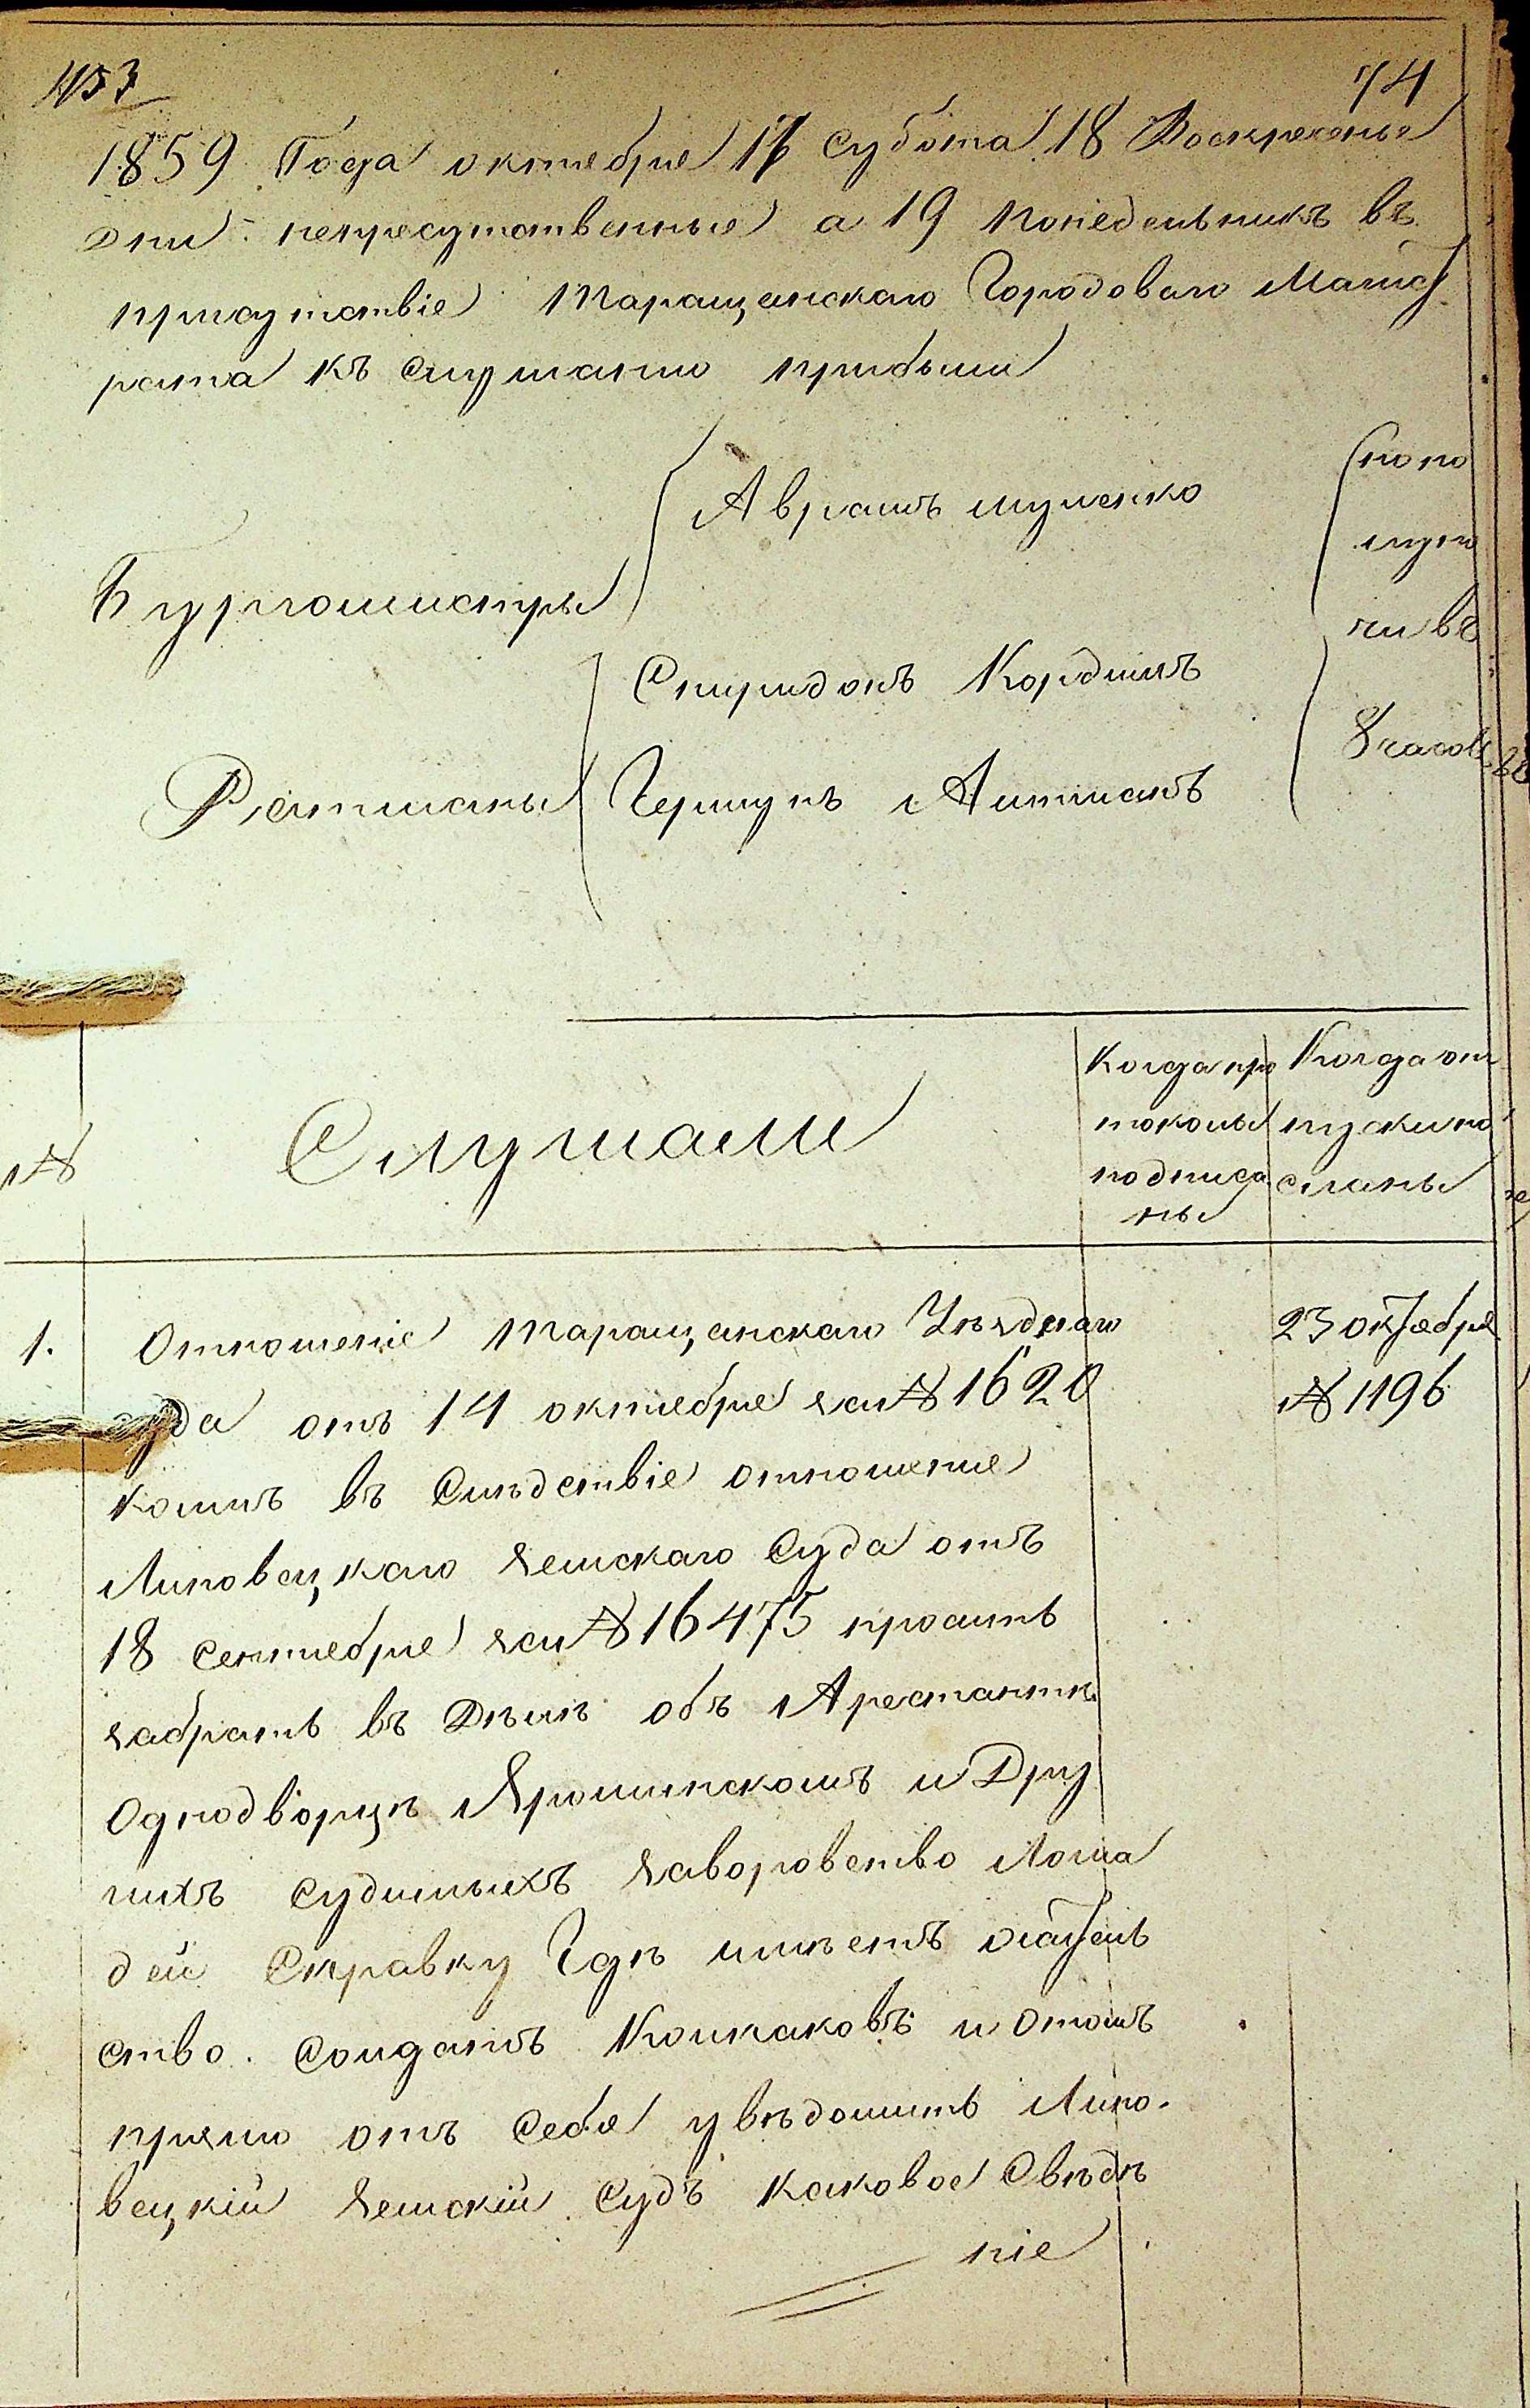 153
74
1859 Года октебря 17 Субота 18 Воскресенье
Дни неприсутственные а 19 понедельникъ въ
присутствіе Таращанскаго Городоваго Магист
рата къ слушанію прибыли
Бургомистры
Аврамъ
Спиридонъ Кордишъ
Ратманы
Литманъ
попо
лудни
въ
8 часовъ
№
Слушали
Когда про
токолы
подписа
ны
Когда от
пуски по
сланы
1.
Отношеніе Таращанскаго Уѣзднаго
уда отъ 14 октебря за № 1620
коимъ въ Слѣдствіе отношение
Липовецкаго Земскаго Суда отъ
18 Сентебря за № 16475 проситъ
забрать въ Дѣлѣ объ Арестантѣ
Однодворцѣ Ярошинскомъ и Дру
гихъ Судимыхъ заворовство Лоша
дей Справку Гдѣ имѣетъ жатель
ство Солдатъ Колкаковъ и отомъ
прямо отъ Себя увѣдомить Липо-
вецкій Земскій Судъ каковое Свѣдѣ
ніе
23 октебря
№ 1196